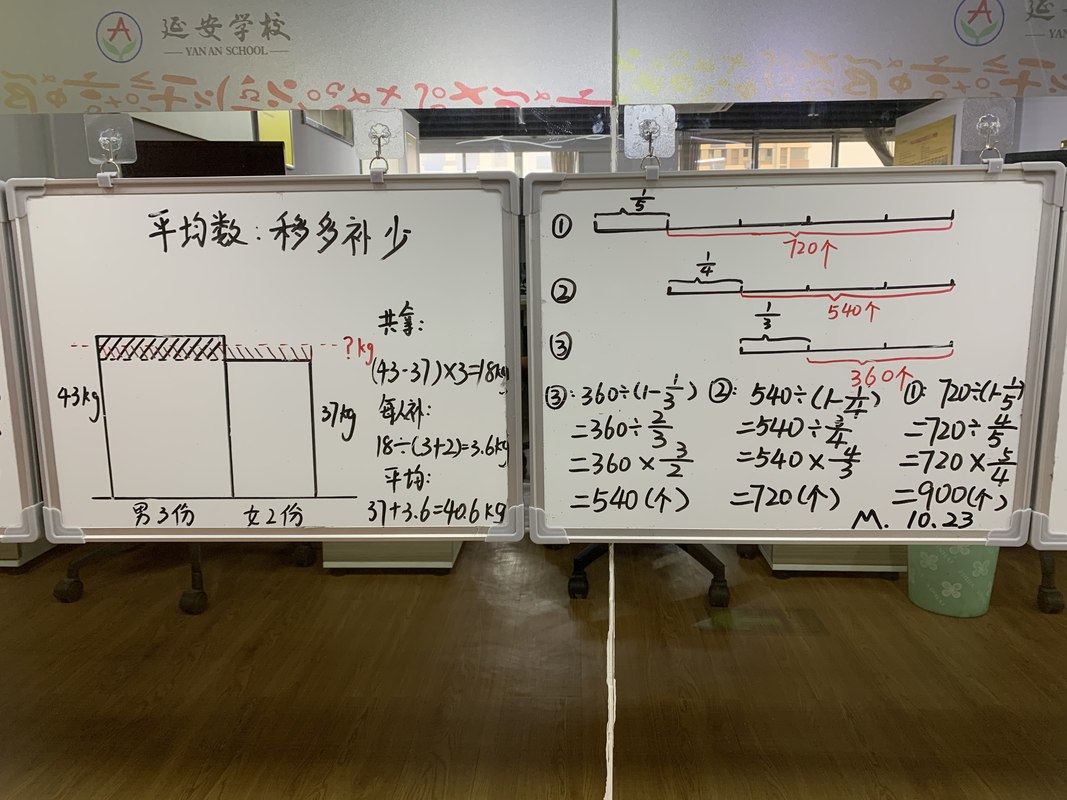 延安学校
YAN AN SCHOOL
延
YAN
平均数：移多补少
共拿：
?kg
(43-37)×3=18kg
43kg
37kg
每人补：
18÷(3+2)=3.6kg
平均：
37+3.6=40.6kg
男3份 女2份
① 1/5
720个
② 1/4
540个
③ 1/3
360个
③：360÷(1-1/3)
=360÷2/3
=360×3/2
=540(个)
②：540÷(1-1/4)
=540÷3/4
=540×4/3
=720(个)
①：720÷(1-1/5)
=720÷4/5
=720×5/4
=900(个)
M. 10.23